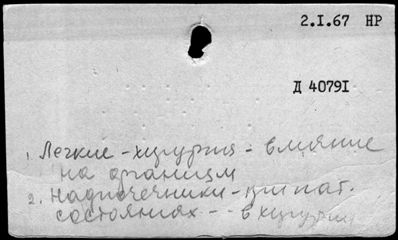 2.I.67 НР
Д 4079I
1. Легкие - хирургия - влияние
на организм
2. Надпочечники - при пат.
состояниях - - в хирургии